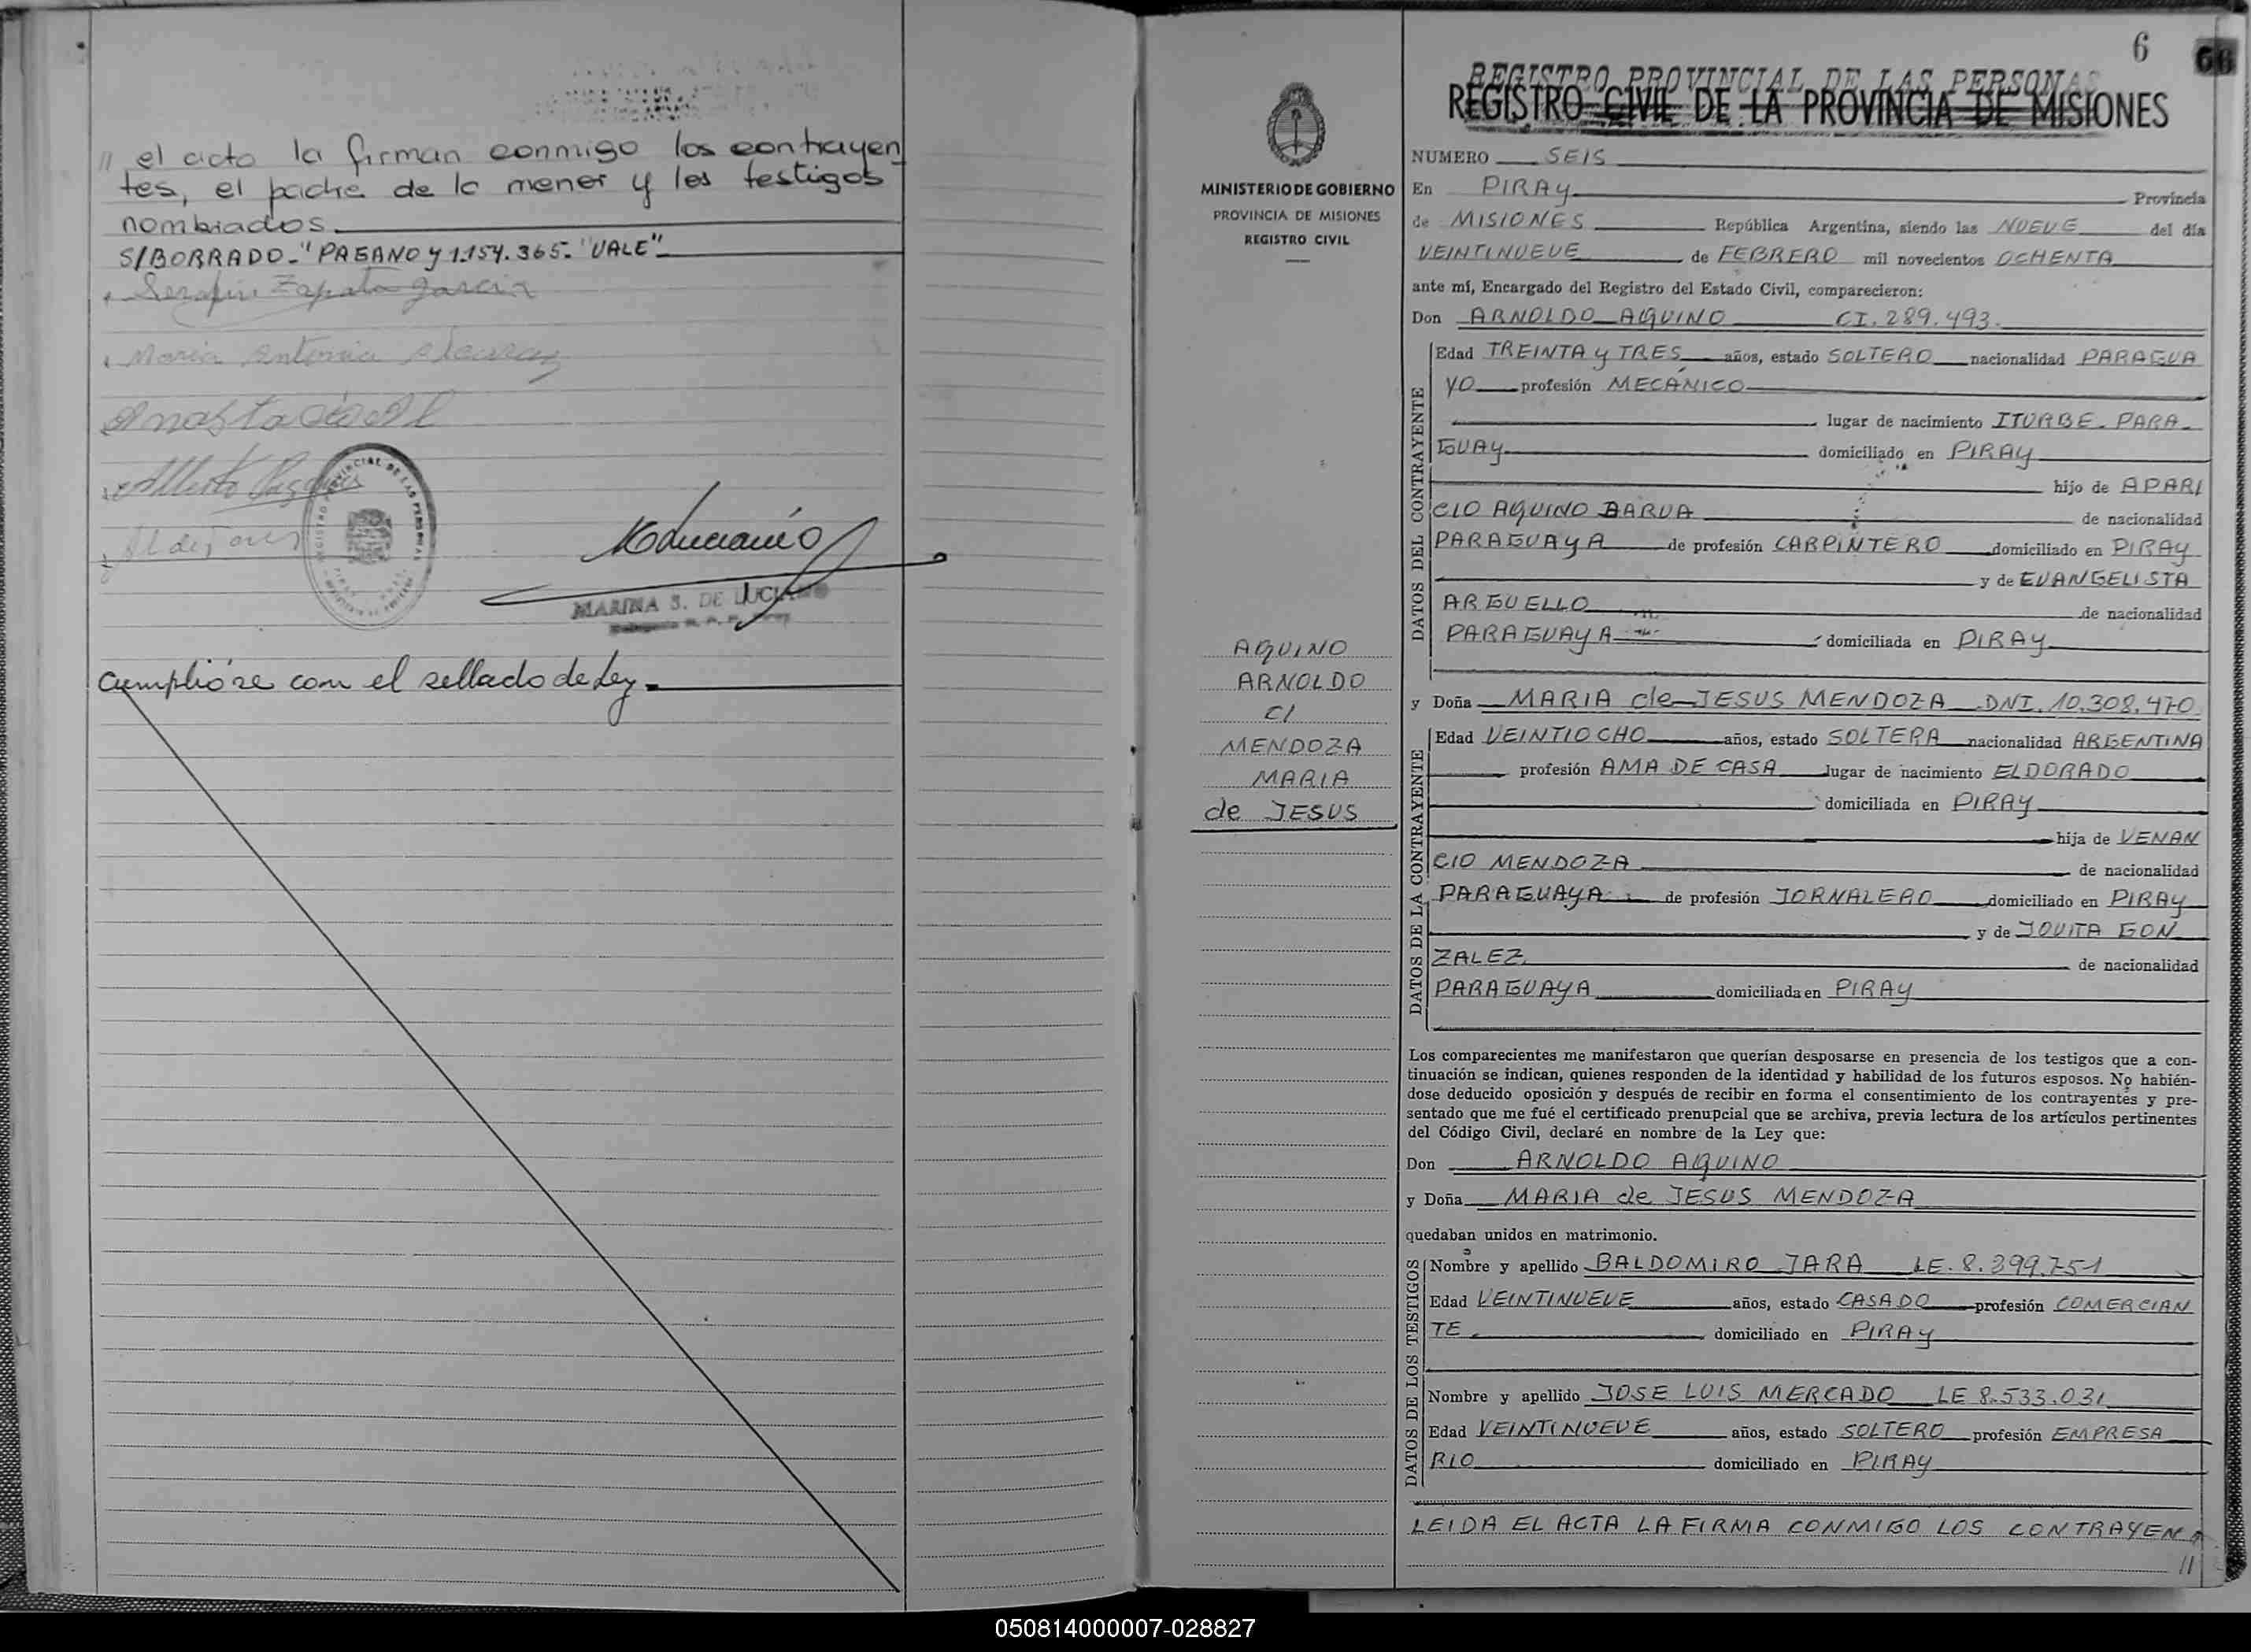 // el acta la firman conmigo los contrayen
tes, el padre de la menor y los testigos
nombrados.
S/BORRADO-"PAGANO y 1.154.365-"VALE"
Serafin Zapata Garcia
Maria Antonia
Alberto
MARINA S. DE LUCIANO
Cumplióse con el sellado de Ley.-
6
REGISTRO PROVINCIAL DE LAS PERSONAS
REGISTRO CIVIL DE LA PROVINCIA DE MISIONES
MINISTERIO DE GOBIERNO
PROVINCIA DE MISIONES
REGISTRO CIVIL
AQUINO
ARNOLDO
C/
MENDOZA
MARIA
de JESUS
NUMERO SEIS
En PIRAY Provincia
de MISIONES República Argentina, siendo las NUEVE del día
VEINTINUEVE de FEBRERO mil novecientos OCHENTA
ante mí, Encargado del Registro del Estado Civil, comparecieron:
Don ARNOLDO AQUINO CI. 289.493.
DATOS DEL CONTRAYENTE
Edad TREINTA y TRES años, estado SOLTERO nacionalidad PARAGUA
YO profesión MECÁNICO
lugar de nacimiento ITURBE- PARA-
GUAY domiciliado en PIRAY
hijo de APARI
CIO AQUINO BARUA de nacionalidad
PARAGUAYA de profesión CARPINTERO domiciliado en PIRAY
y de EVANGELISTA
ARGUELLO de nacionalidad
PARAGUAYA domiciliada en PIRAY
y Doña MARIA de JESUS MENDOZA DNI. 10.308.470
DATOS DE LA CONTRAYENTE
Edad VEINTIOCHO años, estado SOLTERA nacionalidad ARGENTINA
profesión AMA DE CASA lugar de nacimiento ELDORADO
domiciliada en PIRAY
hija de VENAN
CIO MENDOZA de nacionalidad
PARAGUAYA de profesión JORNALERO domiciliado en PIRAY
y de JOVITA GON
ZALEZ de nacionalidad
PARAGUAYA domiciliada en PIRAY
Los comparecientes me manifestaron que querían desposarse en presencia de los testigos que a con-
tinuación se indican, quienes responden de la identidad y habilidad de los futuros esposos. No habién-
dose deducido oposición y después de recibir en forma el consentimiento de los contrayentes y pre-
sentado que me fué el certificado prenupcial que se archiva, previa lectura de los artículos pertinentes
del Código Civil, declaré en nombre de la Ley que:
Don ARNOLDO AQUINO
y Doña MARIA de JESUS MENDOZA
quedaban unidos en matrimonio.
DATOS DE LOS TESTIGOS
Nombre y apellido BALDOMIRO JARA LE. 8.399.751
Edad VEINTINUEVE años, estado CASADO profesión COMERCIAN
TE. domiciliado en PIRAY
Nombre y apellido JOSE LUIS MERCADO LE 8.533.031
Edad VEINTINUEVE años, estado SOLTERO profesión EMPRESA
RIO domiciliado en PIRAY
LEIDA EL ACTA LA FIRMA CONMIGO LOS CONTRAYEN
//
050814000007-028827